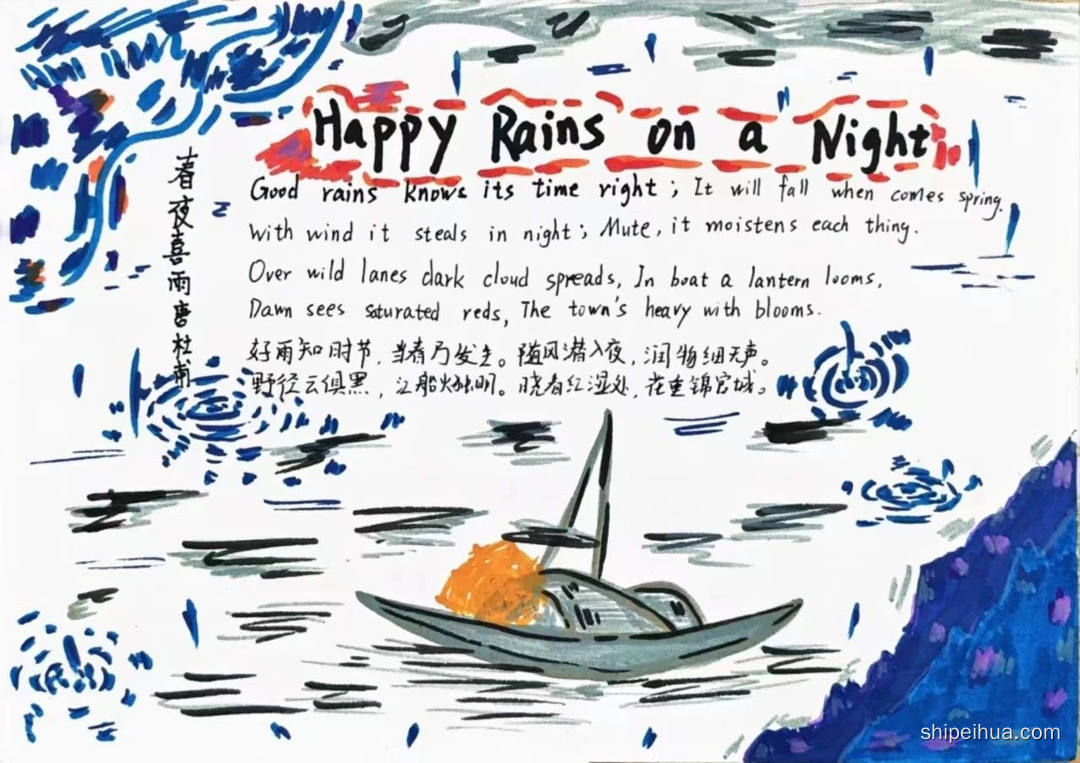 Happy Rains on a Night
春夜喜雨唐杜甫
Good rains knows its time right; It will fall when comes spring.
With wind it steals in night; Mute, it moistens each thing.
Over wild lanes dark cloud spreads, In boat a lantern looms,
Dawn sees saturated reds, The town's heavy with blooms.
好雨知时节,当春乃发生。随风潜入夜,润物细无声。
野径云俱黑,江船火独明。晓看红湿处,花重锦官城。
shipeihua.com